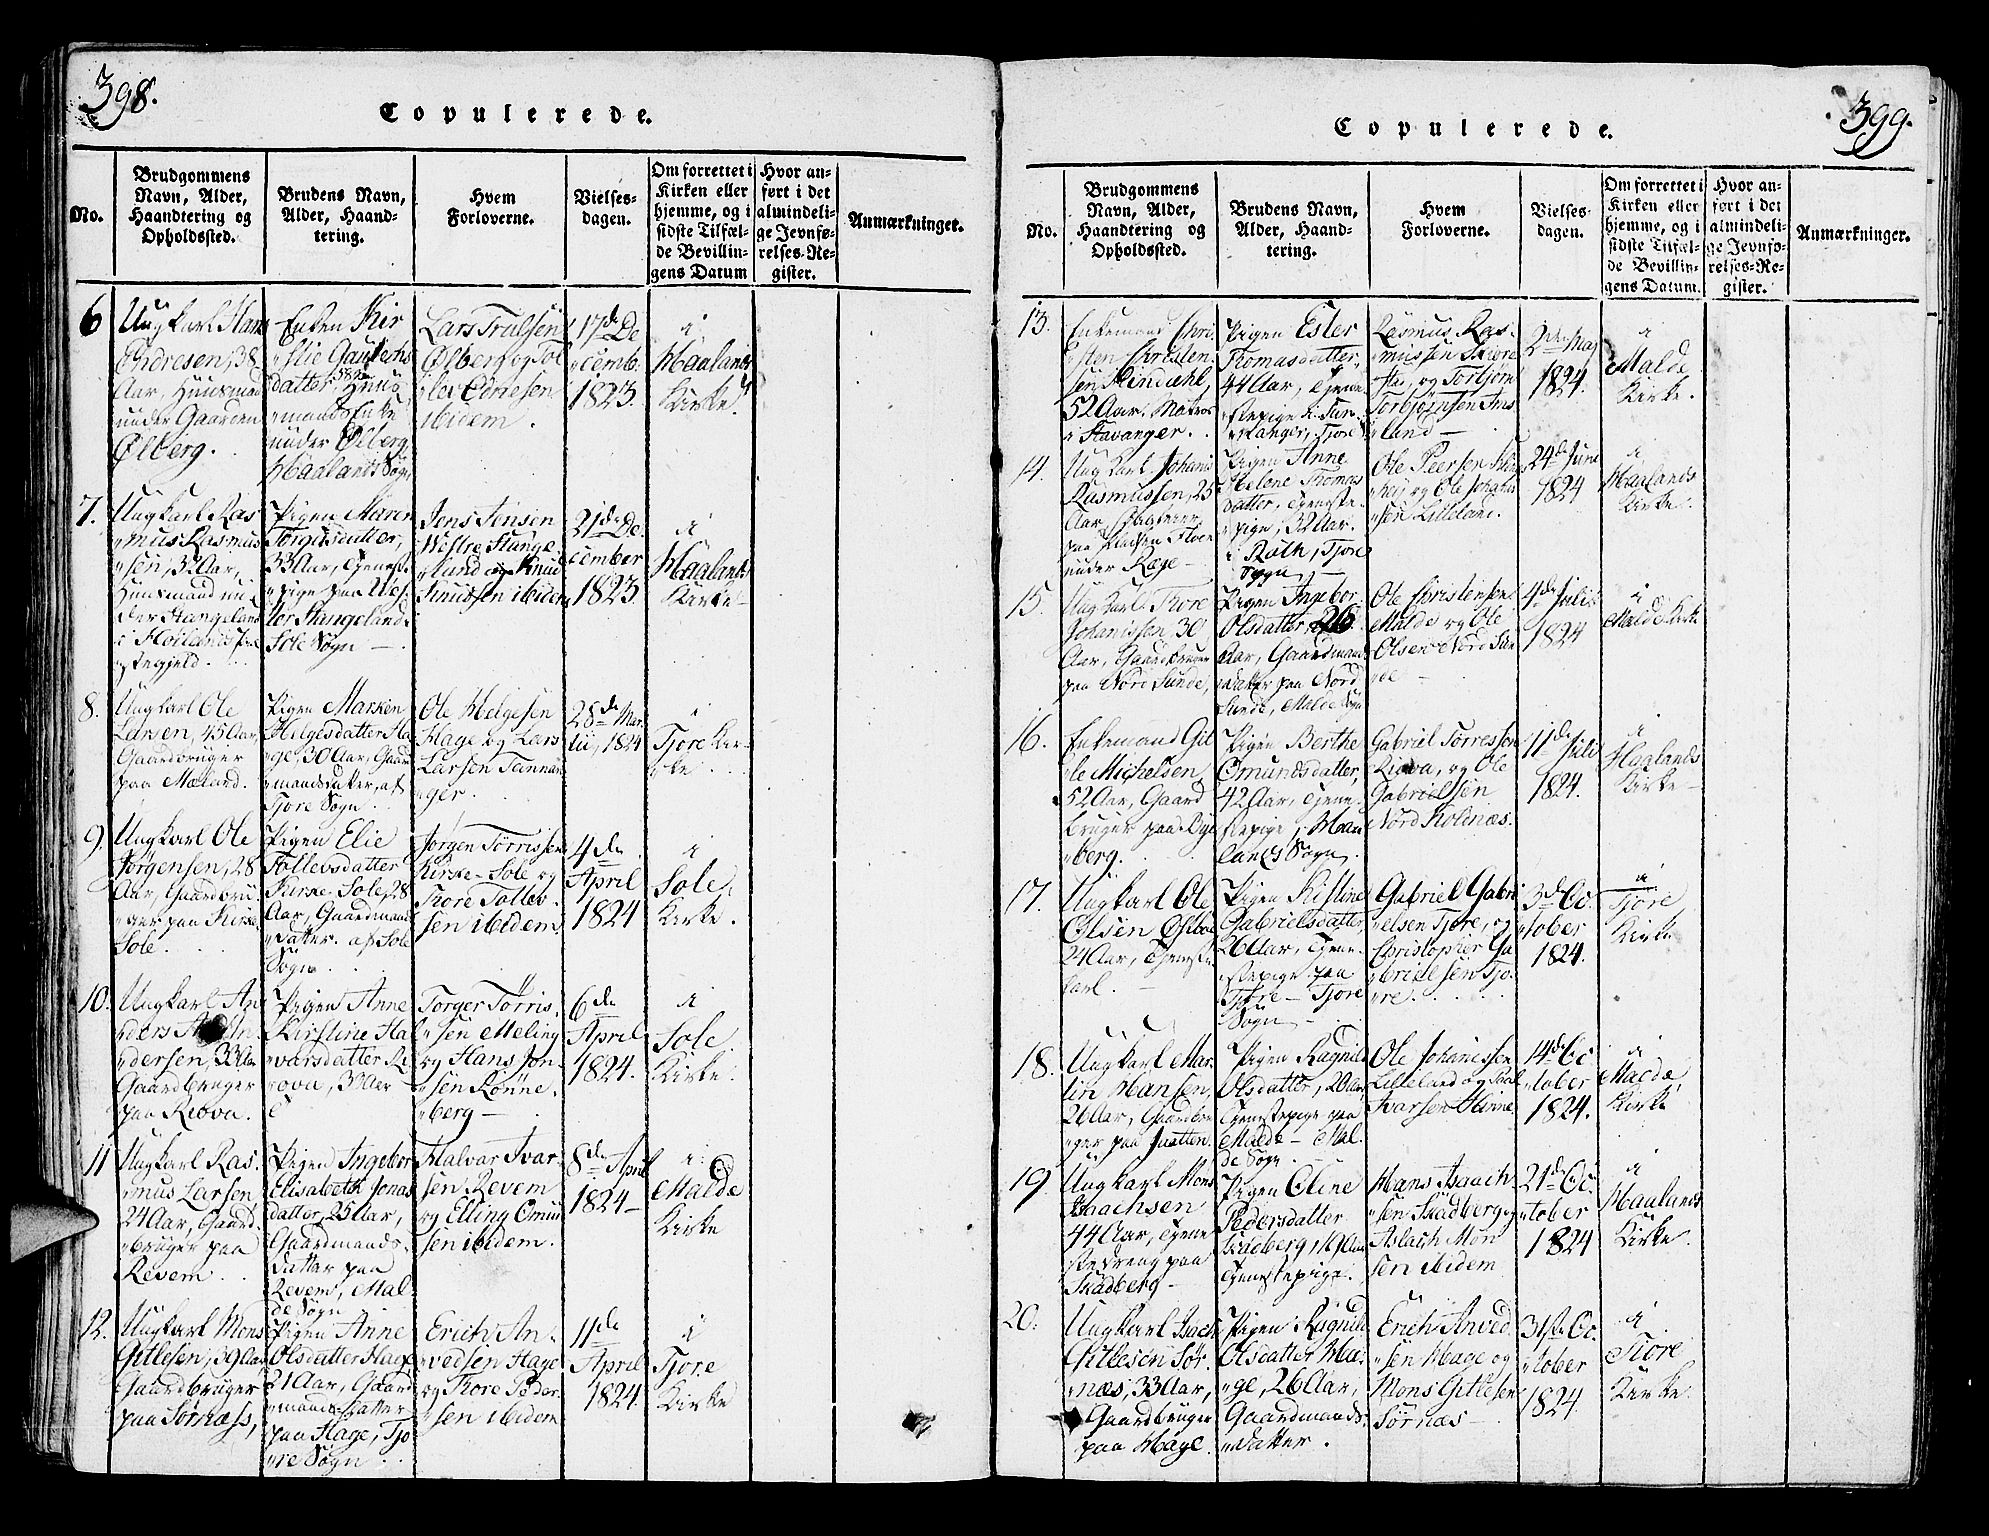 398.
Copulerede.
No.
Brudgommens
Navn, Alder,
Haandtering og
Opholdssted.
Brudens Navn,
Alder, Haand-
tering.
Hvem
Forloverne.
Vielses-
dagen.
Om forrettet i
Kirken eller
hjemme, og i
sidste Tilfæl-
de Bevillin-
gens Datum
Hvor an-
ført i det
almindeli-
ge Jevnfø-
relses-Re-
gister.
Anmærkninger.
6
Ungkarl Hans
Endresen, 38
Aar, Huusmand
under Gaarden
Ølberg.
Enken Kir
datter, 58 Huus
mands Enke
under Ølberg
Haalands Sogn
Lars Trulsen
Ølberg og Tol
lev Edvicsen
ibidem.
17de De
cemb.
1823.
i
Haalands
Kirke.
7.
Ungkarl Ras
mus Rasmus
sen, 32 Aar,
Huusmand un
der Stangeland
i Høilands Præ
stegjeld.
Pigen Maren
Torgersdatter,
33 Aar, Tjenest
pige paa Ves
tor Stangeland
Sole Sogn
Jens Jensen
Westre Stange
lund og Knud
Knudsen ibidem
21de De
cember
1823.
i
Haalands
Kirke
8.
Ungkarl Ole
Larsen, 45 Aar,
Gaardbruger
paa Mæland.
Pigen Marken
Helgesdatter Ha
ge, 30 Aar, Gaard
mandsdatter, af
Tjore Sogn.
Ole Helgesen
Hage og Lars
Larsen Tannan
ger.
28de Mar
tii, 1824
i
Tjore Kir
ke.
9.
Ungkarl Ole
Jørgensen, 28
Aar, Gaardbru
ger paa Kirke
Sole.
Pigen Elie
Tollevsdatter
Kirke-Sole, 28
Aar, Gaardmands
datter af Sole
Sogn
Jørgen Tørrissen
Kirke-Sole og
Thore Tollev
sen ibidem.
4de
April
1824
i
Sole
Kirke.
10.
Ungkarl An
ders An
dersen, 33 Aar
Gaardbruger
paa Reova.
Pigen Anne
Kirstine Hal
vorsdatter Re
ova, 30 Aar
Torger Tørris
sen Meling
og Hans Jon
sen Rønne
berg
6de
April
1824.
i
Sole
Kirke.
11
Ungkarl Ras
mus Larsen
24 Aar, Gaard
bruger paa
Revem.
Pigen Ingebor
Elisabeth Jonas
datter, 25 Aar,
Gaardmands
datter paa
Revem, Mal
de Sogn
Halvar Ivar
sen Revem
og Elling Omun
sen ibidem.
8de April
1824
i
Malde
Kirke
12.
Ungkarl Mons
Gitlesen, 39 Aar
Gaardbruger
paa Sørnæss,
Pigen Anne
Olsdatter Hage
21 Aar, Gaard
mandsdatter
paa Hage, Tjo
re Sogn
Erich An
vedsen Hage
og Thore Peder
sen ibidem
11de
April
1824.
i
Tjore
Kirke
399.
Copulerede.
No.
Brudgommens
Navn, Alder,
Haandtering og
Opholdssted.
Brudens Navn,
Alder, Haand-
tering.
Hvem
Forloverne.
Vielses-
dagen.
Om forrettet i
Kirken eller
hjemme, og i
sidste Tilfæl-
de Bevillin-
gens Datum.
Hvor an-
ført i det
almindeli-
ge Jevnfø-
relses-Re-
gister.
Anmærkninger.
13.
Enkemand Chri
sten Christen
sen
52 Aar, Matros
i Stavanger.
Pigen Ester
Thomasdatter,
44 Aar, Tjene
stepige i Tan
nanger, Tjore
Rasmus Ras
mussen
og Torbjørn
Torbjørnsen Ims
land
2den Maj
1824.
i
Malde
Kirke.
14.
Ungkarl Johanis
Rasmussen, 25
Aar,
paa Pladsen
under Ræge
Pigen Anne
Helene Thomas
datter, Tjeneste
pige, 32 Aar.
i Roth, Tjore
Sogn
Ole Peersen
og Ole Johanis
sen Lilleland.
24de Juni
1824
i
Haalands
Kirke.
15.
Ungkarl Thore
Johanissen, 30
Aar, Gaardbruger
paa Nord Sunde,
Pigen Ingebor
Olsdatter, 26
Aar, Gaardmands
datter paa Nord
Sunde, Malde Sogn
Ole Christensen
Malde og Ole
Olsen Nord Sun
de
4de Juli
1824
i
Malde Kirke
16.
Enkemand Git
le Michelsen,
52 Aar, Gaard
bruger paa Bye
berg.
Pigen Berthe
Omundsdatter,
42 Aar, Tjene
stepige, i Haa
lands Sogn.
Gabriel Torressen
Riova, og Ole
Gabrielsen
Nord Kolnæs.
11de Juli
1824.
i
Haalands
Kirke
17.
Ungkarl Ole
Olsen
24 Aar, Tjeneste
karl.
Pigen Kistine
Gabrielsdatter,
26 Aar, Tjene
stepige paa
Tjore - Tjore
Sogn
Gabriel Gabri
elsen Tjore, og
Christopher Ga
brielsen Tjo
re.
3de Oc
tober
1824.
i
Tjore
Kirke
18.
Ungkarl Mar
tin Hansen,
26 Aar, Gaardbru
ger paa Juatten.
Pigen Ragnild
Olsdatter, 20 Aar,
Tjenestepige paa
Malde - Mal
de Sogn
Ole Johanissen
Lilleland og Paal
Ivarsen Hinne
14de Oc
tober
1824.
i
Malde
Kirke
19
Ungkarl Mons
Isaachsen
44 Aar, Tjene
stedreng paa
Skadberg
Pigen Oline
Pedersdatter
Skadberg, 19 Aar
Tjenestepige.
Hans Isaach
sen Skadberg og
Aslach Mon
sen ibidem
21de Oc
tober
1824
i
Haalands
Kirke.
20.
Ungkarl Isach
Gitlesen Sør
næs, 33 Aar,
Gaardbruger
paa Hage.
Pigen Ragnild
Olsdatter Ha
ge, 26 Aar,
Gaardmands
datter.
Erich Anved
sen Hage og
Mons Gitlesen
Sørnæs
31te Oc
tober
1824
i
Tjore
Kirke.